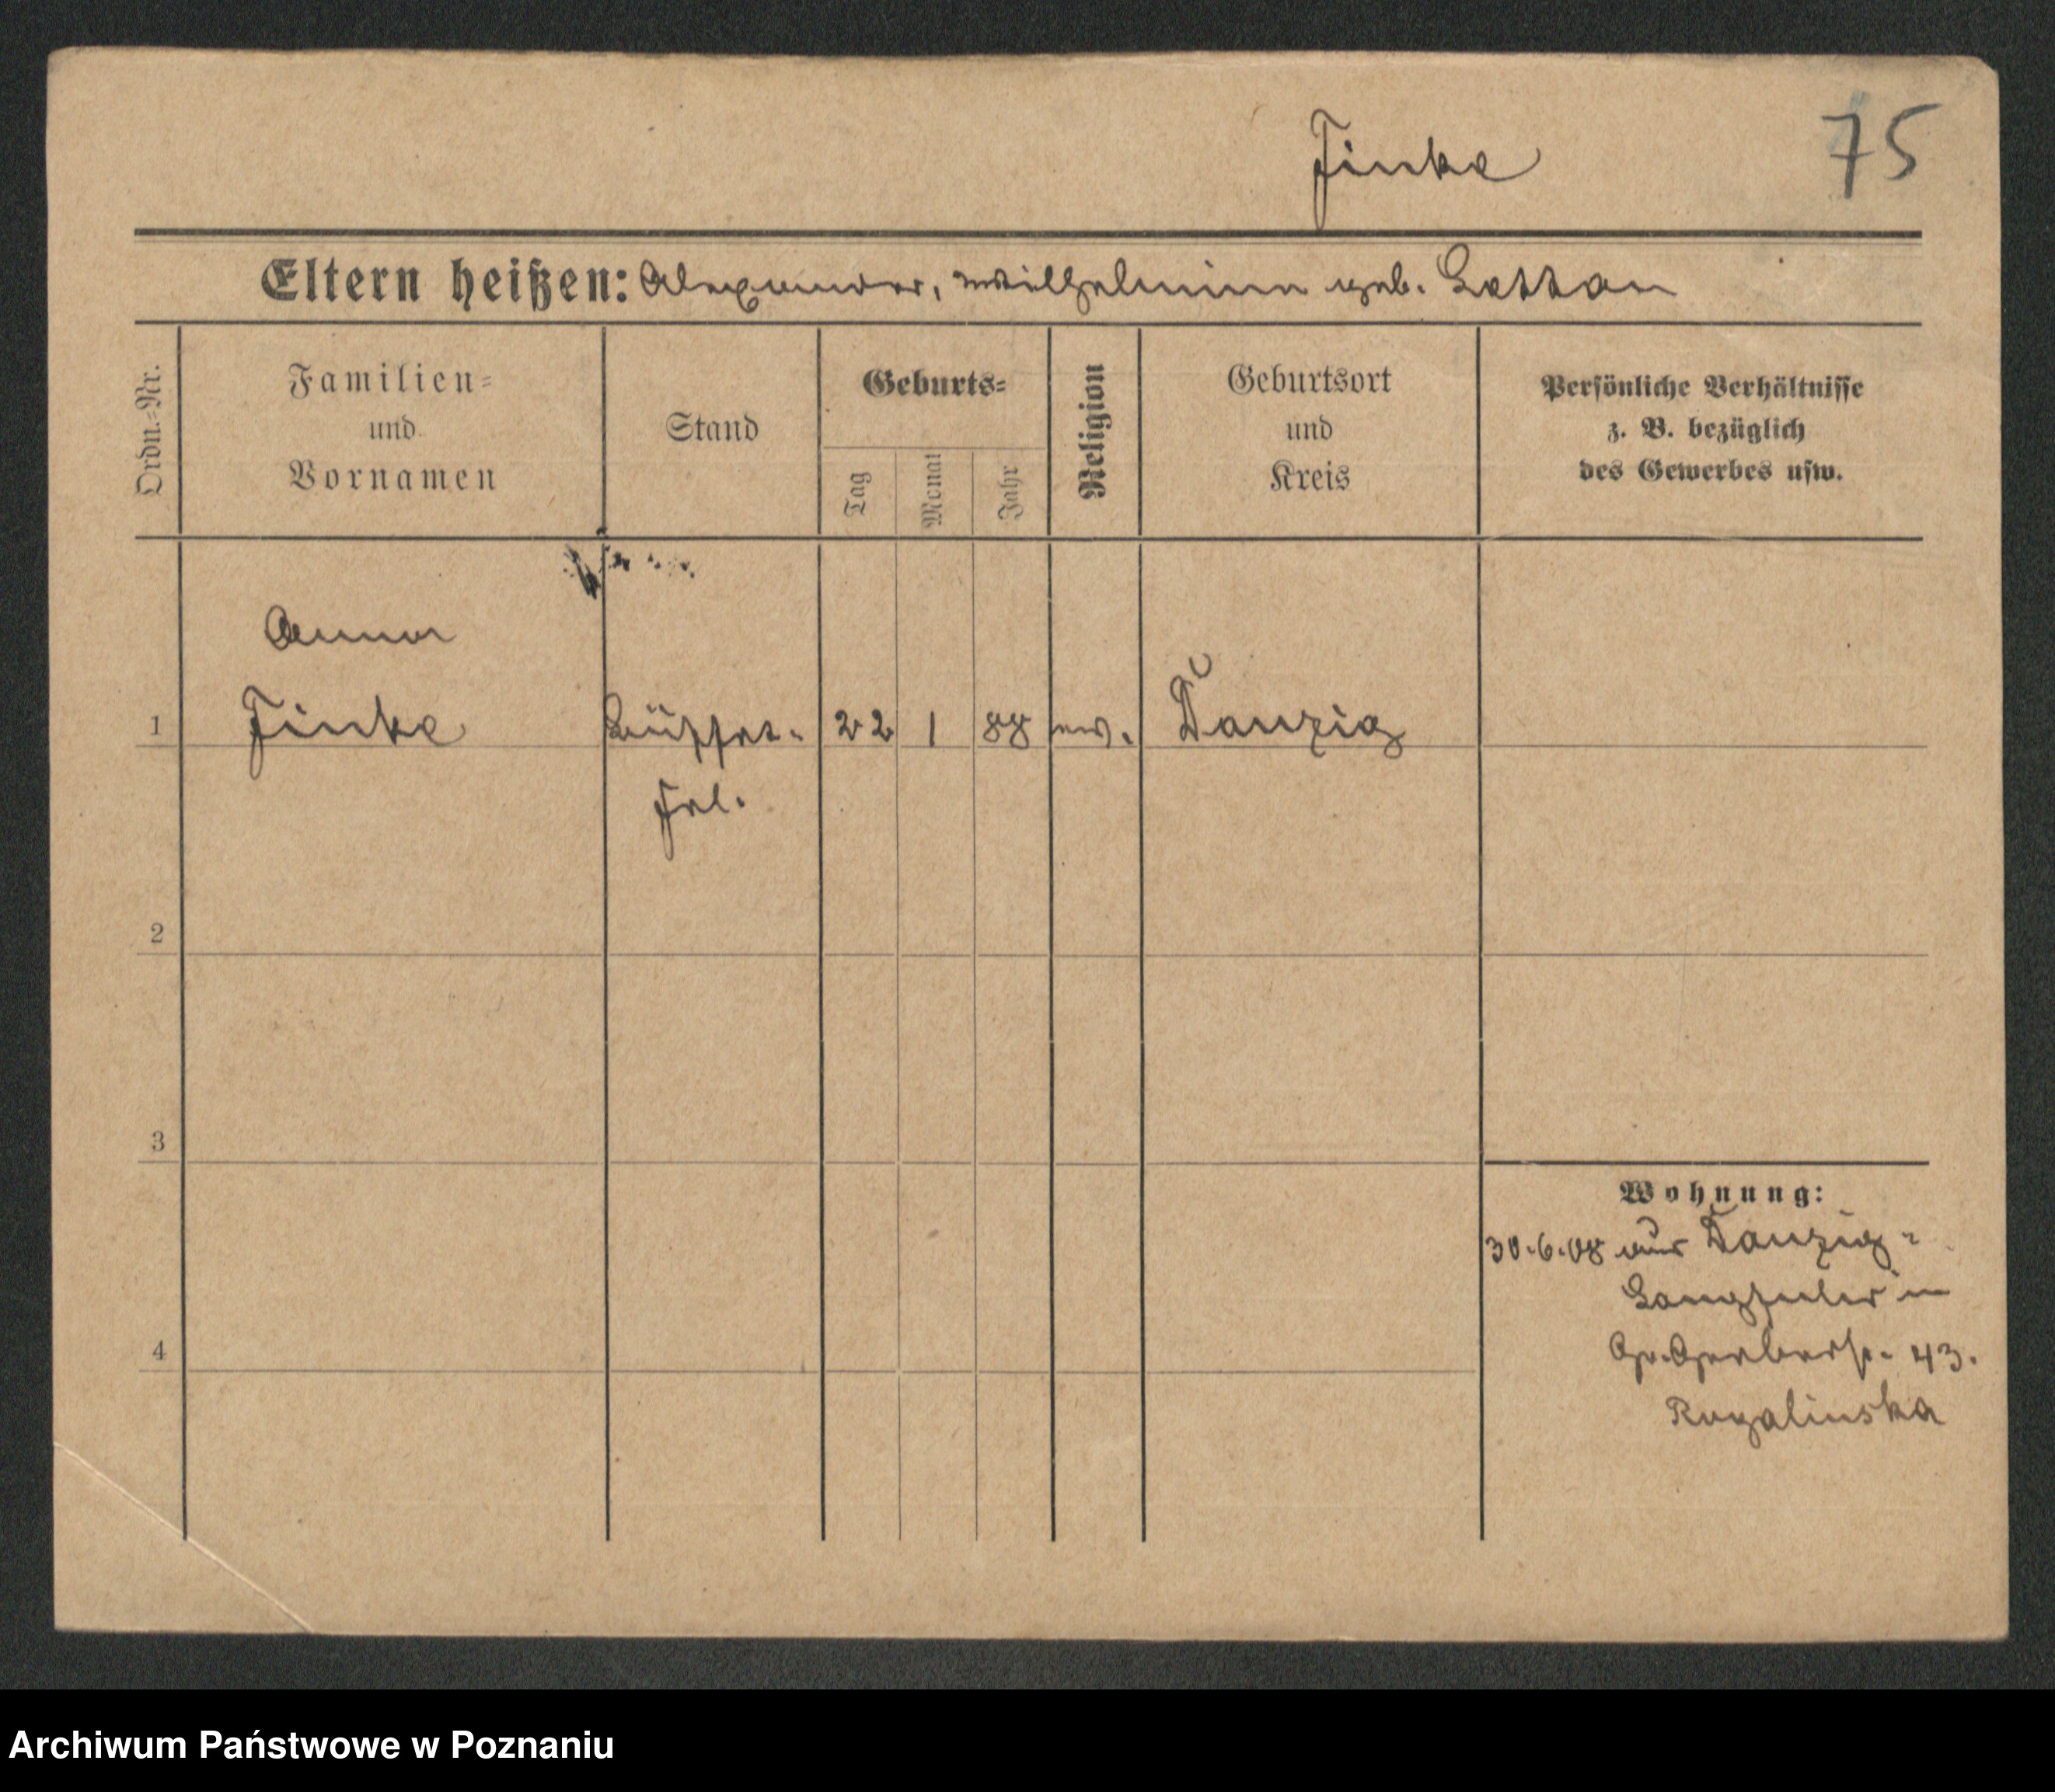 Finke
75
Eltern heißen: Alexander, Wilhelmine geb.
Ordn.=Nr.
Familien=
und
Vornamen
Stand
Geburts=
Tag
Monat
Jahr
Religion
Geburtsort
und
Kreis
Persönliche Verhältnisse
z. B. bezüglich
des Gewerbes usw.
Anna
1 Finke Büffet- 22 1 88 ev. Danzig
Frl.
2
3
4
Wohnung:
30.6.08 aus Danzig-
Langfuhr in
Gr. Gerberstr. 43.
Rogalinska
Archiwum Państwowe w Poznaniu